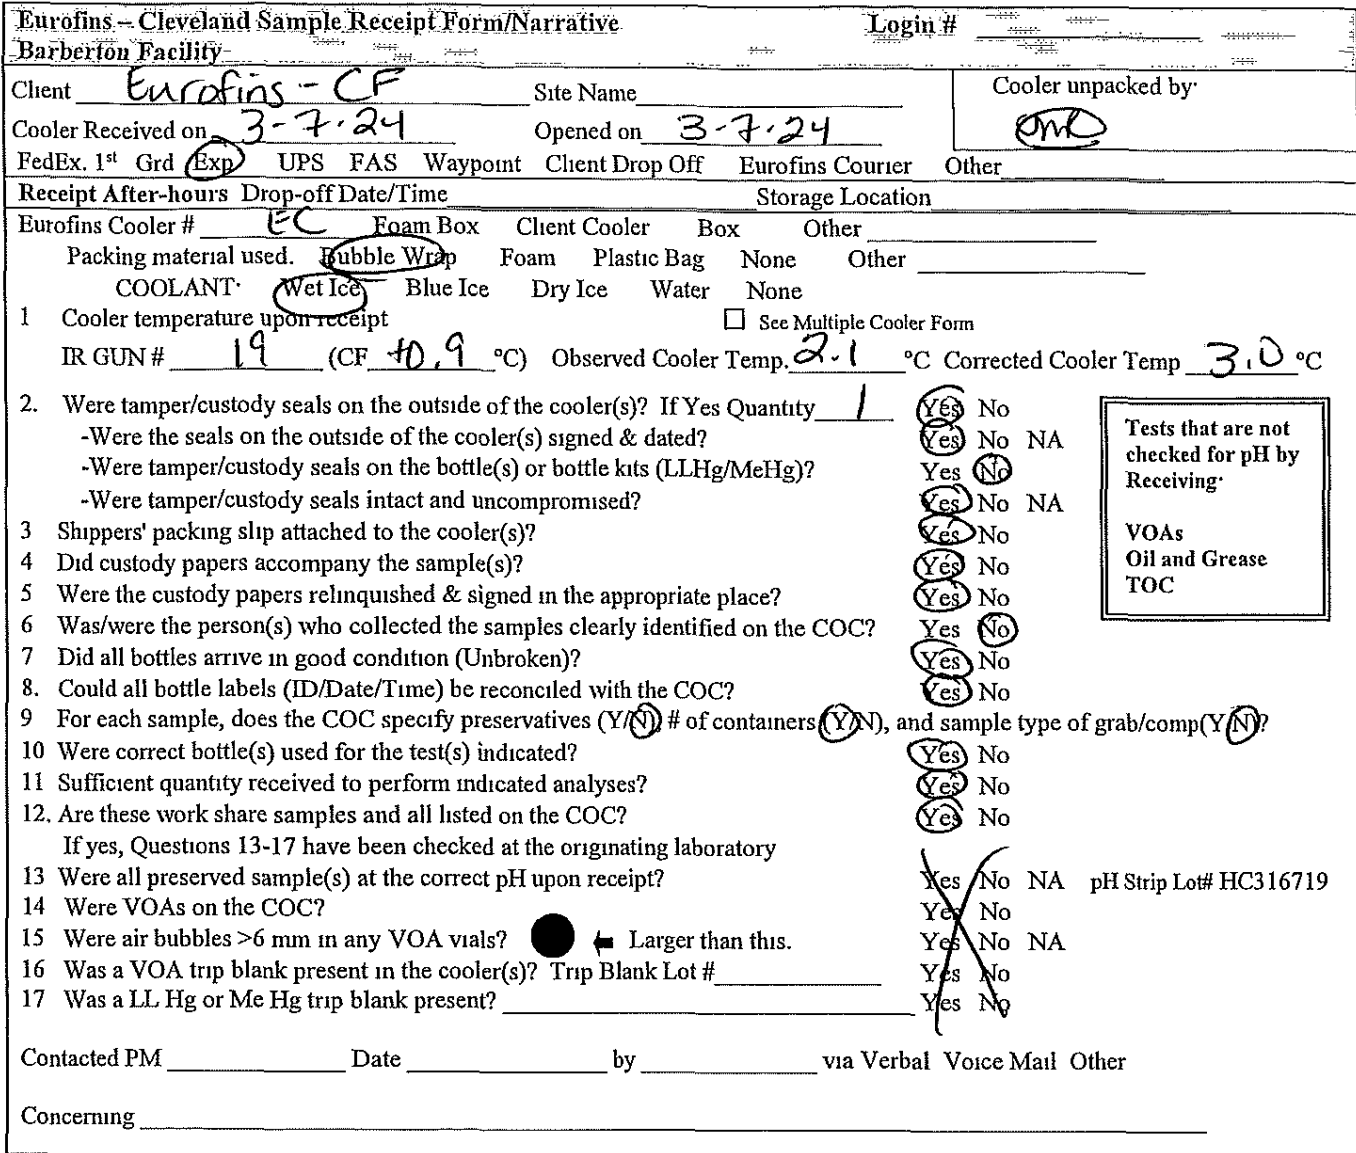 Eurofins – Cleveland Sample Receipt Form/Narrative Login #
Barberton Facility
Client Eurofins - CF Site Name Cooler unpacked by:
Cooler Received on 3-7-24 Opened on 3-7-24
FedEx. 1st Grd Exp UPS FAS Waypoint Client Drop Off Eurofins Courier Other
Receipt After-hours Drop-off Date/Time Storage Location
Eurofins Cooler # EC Foam Box Client Cooler Box Other
Packing material used. Bubble Wrap Foam Plastic Bag None Other
COOLANT: Wet Ice Blue Ice Dry Ice Water None
1 Cooler temperature upon receipt ☐ See Multiple Cooler Form
IR GUN # 19 (CF +0.9 °C) Observed Cooler Temp. 2.1 °C Corrected Cooler Temp 3.0 °C
2. Were tamper/custody seals on the outside of the cooler(s)? If Yes Quantity 1 Yes No
-Were the seals on the outside of the cooler(s) signed & dated? Yes No NA
-Were tamper/custody seals on the bottle(s) or bottle kits (LLHg/MeHg)? Yes No
-Were tamper/custody seals intact and uncompromised? Yes No NA
3 Shippers' packing slip attached to the cooler(s)? Yes No
4 Did custody papers accompany the sample(s)? Yes No
5 Were the custody papers relinquished & signed in the appropriate place? Yes No
6 Was/were the person(s) who collected the samples clearly identified on the COC? Yes No
7 Did all bottles arrive in good condition (Unbroken)? Yes No
8. Could all bottle labels (ID/Date/Time) be reconciled with the COC? Yes No
Tests that are not
checked for pH by
Receiving:
VOAs
Oil and Grease
TOC
9 For each sample, does the COC specify preservatives (Y/N), # of containers (Y/N), and sample type of grab/comp(Y/N)?
10 Were correct bottle(s) used for the test(s) indicated? Yes No
11 Sufficient quantity received to perform indicated analyses? Yes No
12. Are these work share samples and all listed on the COC? Yes No
If yes, Questions 13-17 have been checked at the originating laboratory
13 Were all preserved sample(s) at the correct pH upon receipt? Yes No NA pH Strip Lot# HC316719
14 Were VOAs on the COC? Yes No
15 Were air bubbles >6 mm in any VOA vials? Larger than this. Yes No NA
16 Was a VOA trip blank present in the cooler(s)? Trip Blank Lot # Yes No
17 Was a LL Hg or Me Hg trip blank present? Yes No
Contacted PM Date by via Verbal Voice Mail Other
Concerning